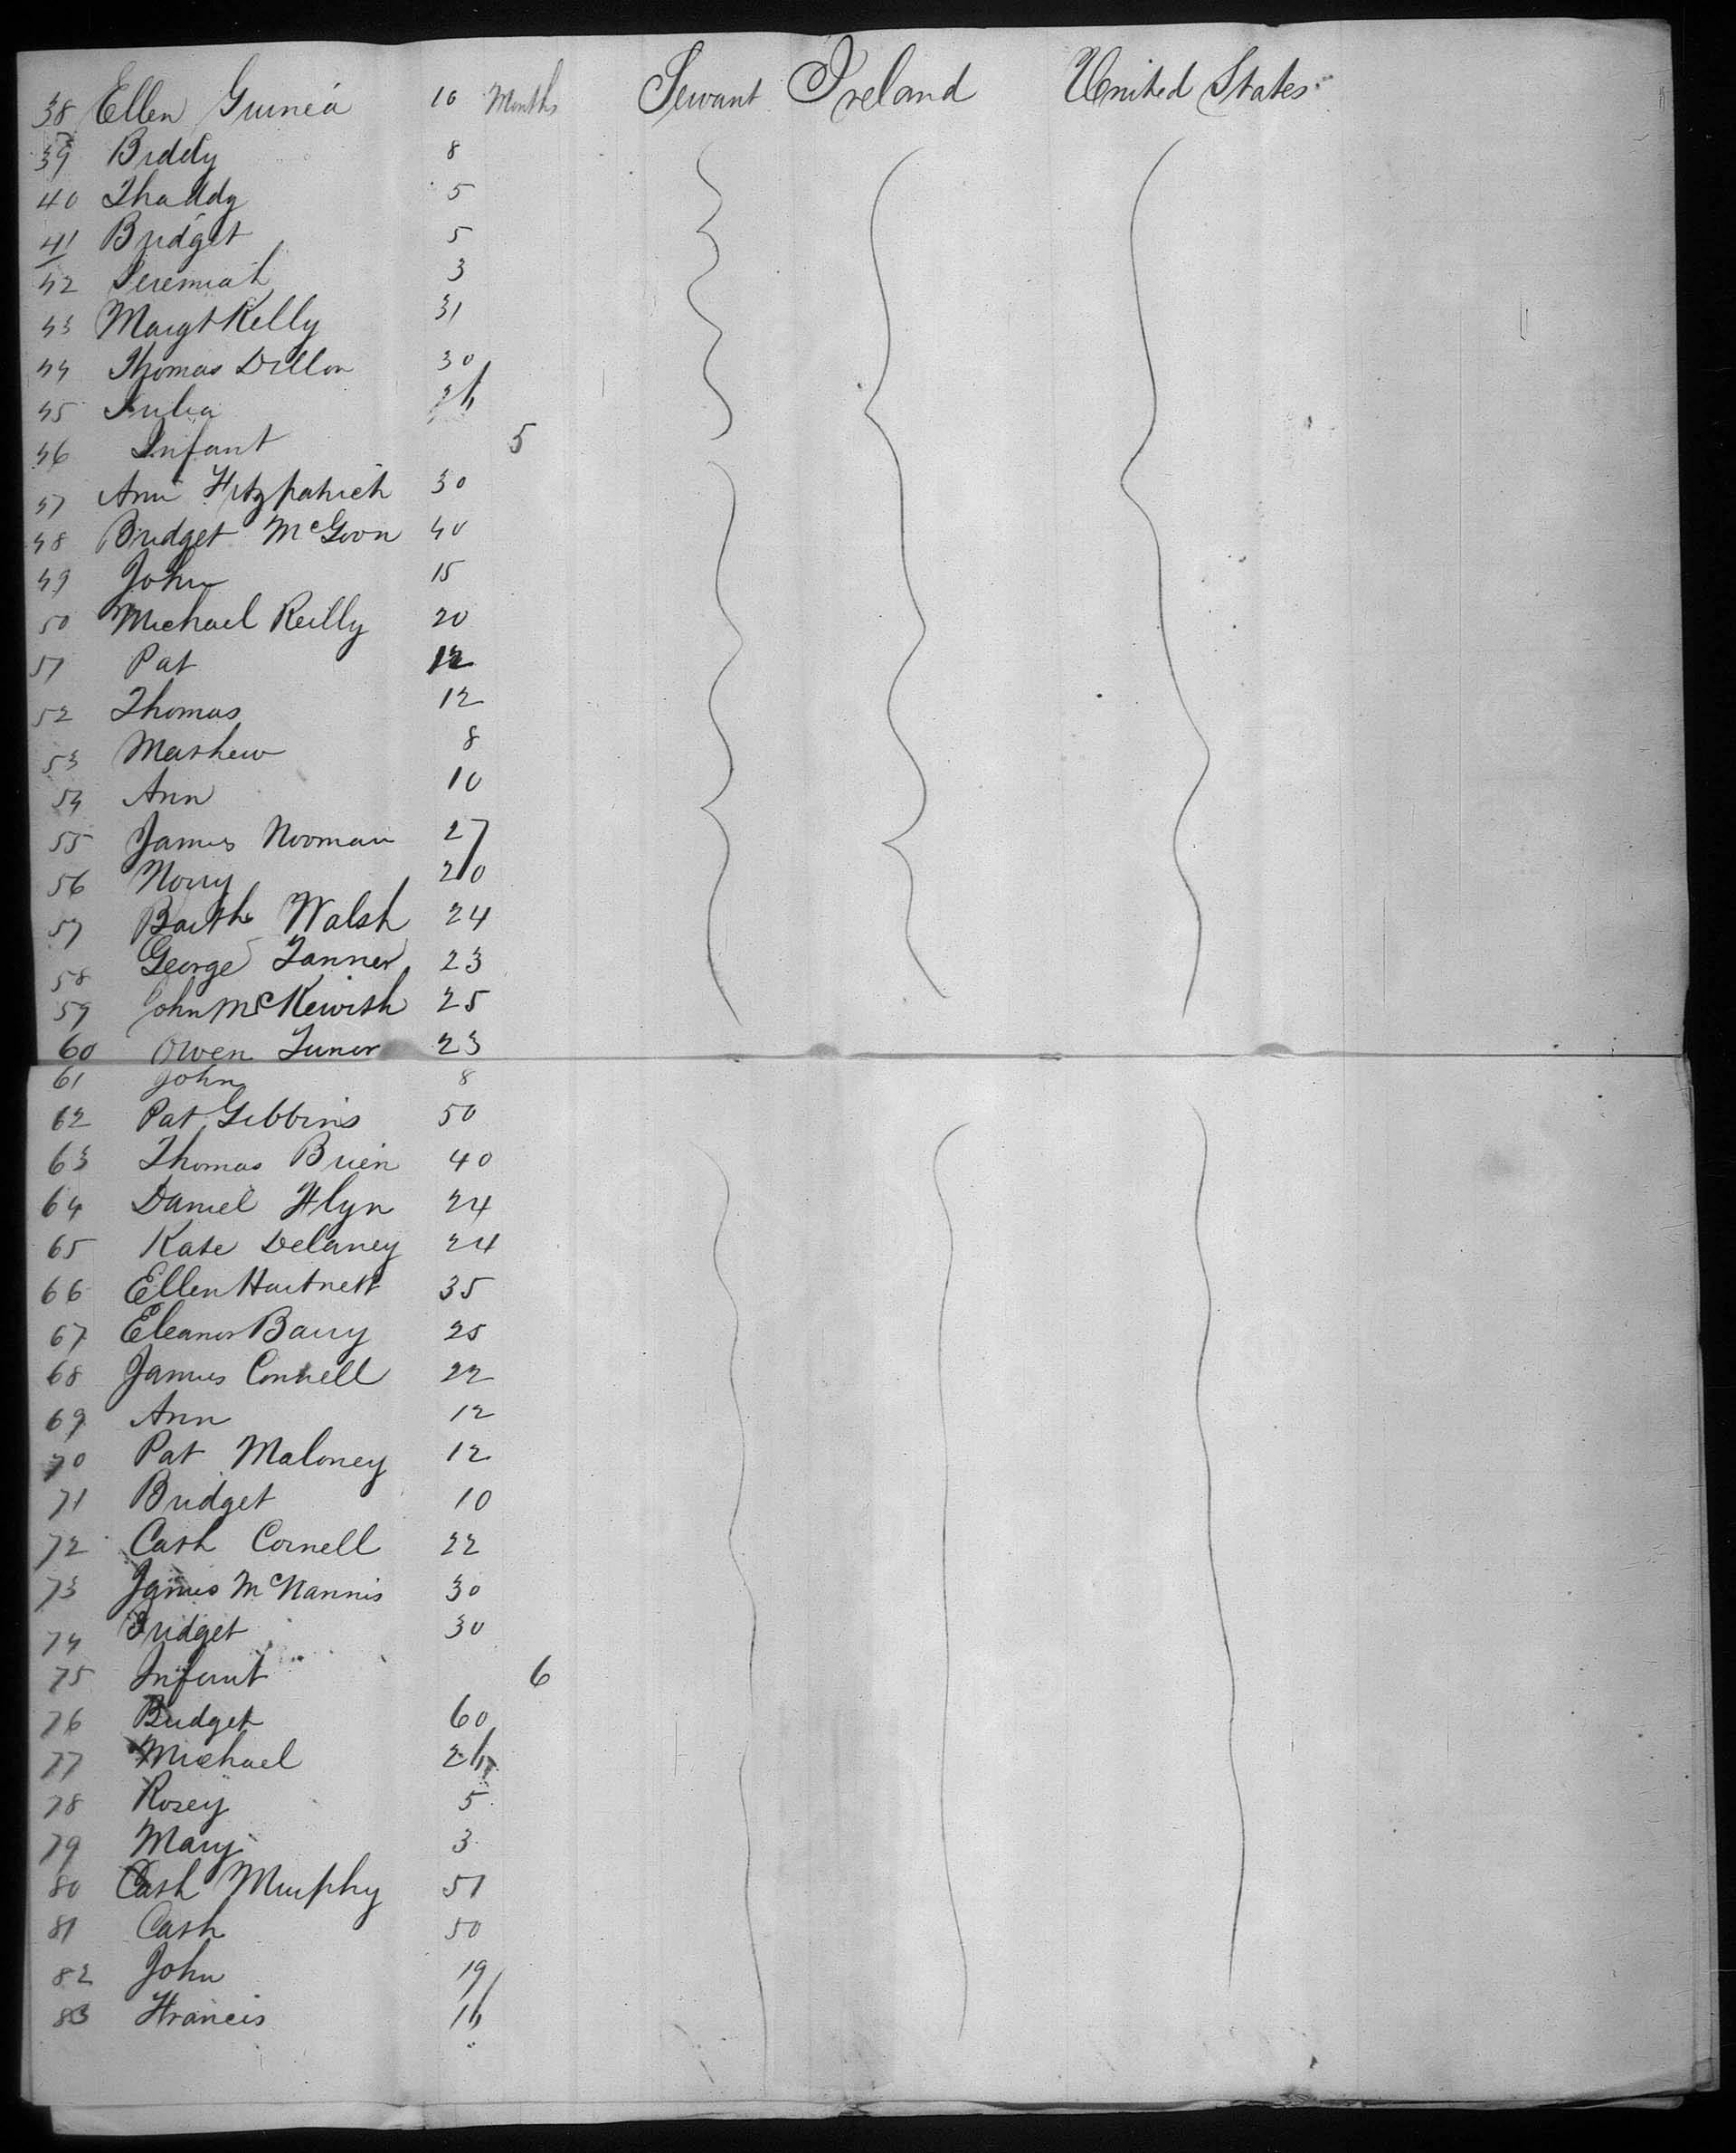 38 Ellen Guinea 10 Months Servant Ireland United States
39 Biddy 8
40 Thaddy 5
41 Bridget 5
42 Jeremiah 3
43 Margt Kelly 31
44 Thomas Dillon 30
45 Julia 26
46 Infant 5
47 Ann Fitzpatrick 30
48 Bridget McGovn 40
49 John 15
50 Michael Reilly 20
51 Pat 12
52 Thomas 12
53 Mathew 8
54 Ann 10
55 James Noonan 27
56 Norry 20
57 Barth Walsh 24
58 George Tanner 23
59 John McKewish 25
60 Owen Tuner 23
61 John 8
62 Pat Gibbins 50
63 Thomas Brien 40
64 Daniel Flyn 24
65 Kate Delaney 24
66 Ellen Hartnett 35
67 Eleanor Barry 25
68 James Connell 22
69 Ann 12
70 Pat Maloney 12
71 Bridget 10
72 Cath Connell 22
73 James McNannis 30
74 Bridget 30
75 Infant 6
76 Bridget 60
77 Michael 26
78 Rosey 5
79 Mary 3
80 Cath Murphy 51
81 Cath 50
82 John 19
83 Francis 16